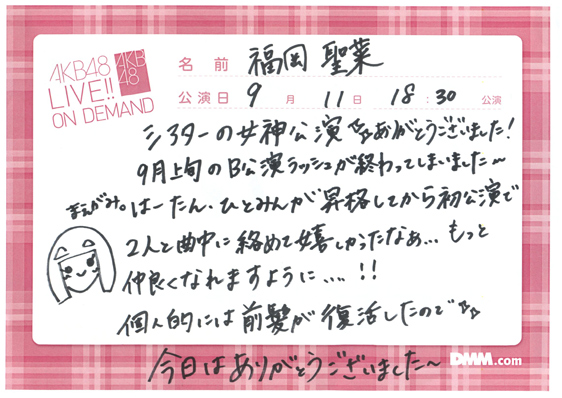 AKB48
LIVE!!
ON DEMAND
AKB
48
名前 福岡 聖菜
公演日 9月 11日 18:30 公演
シアターの女神公演☆☆ありがとうございました!
9月上旬のB公演ラッシュが終わってしまいました〜
まえがみ。
はーたん、ひとみんが昇格してから初公演で
2人と曲中に絡めて嬉しかったなぁ... もっと
仲良くなれますように...!!
個人的には前髪が復活したので☆☆
今日はありがとうございました〜
DMM.com